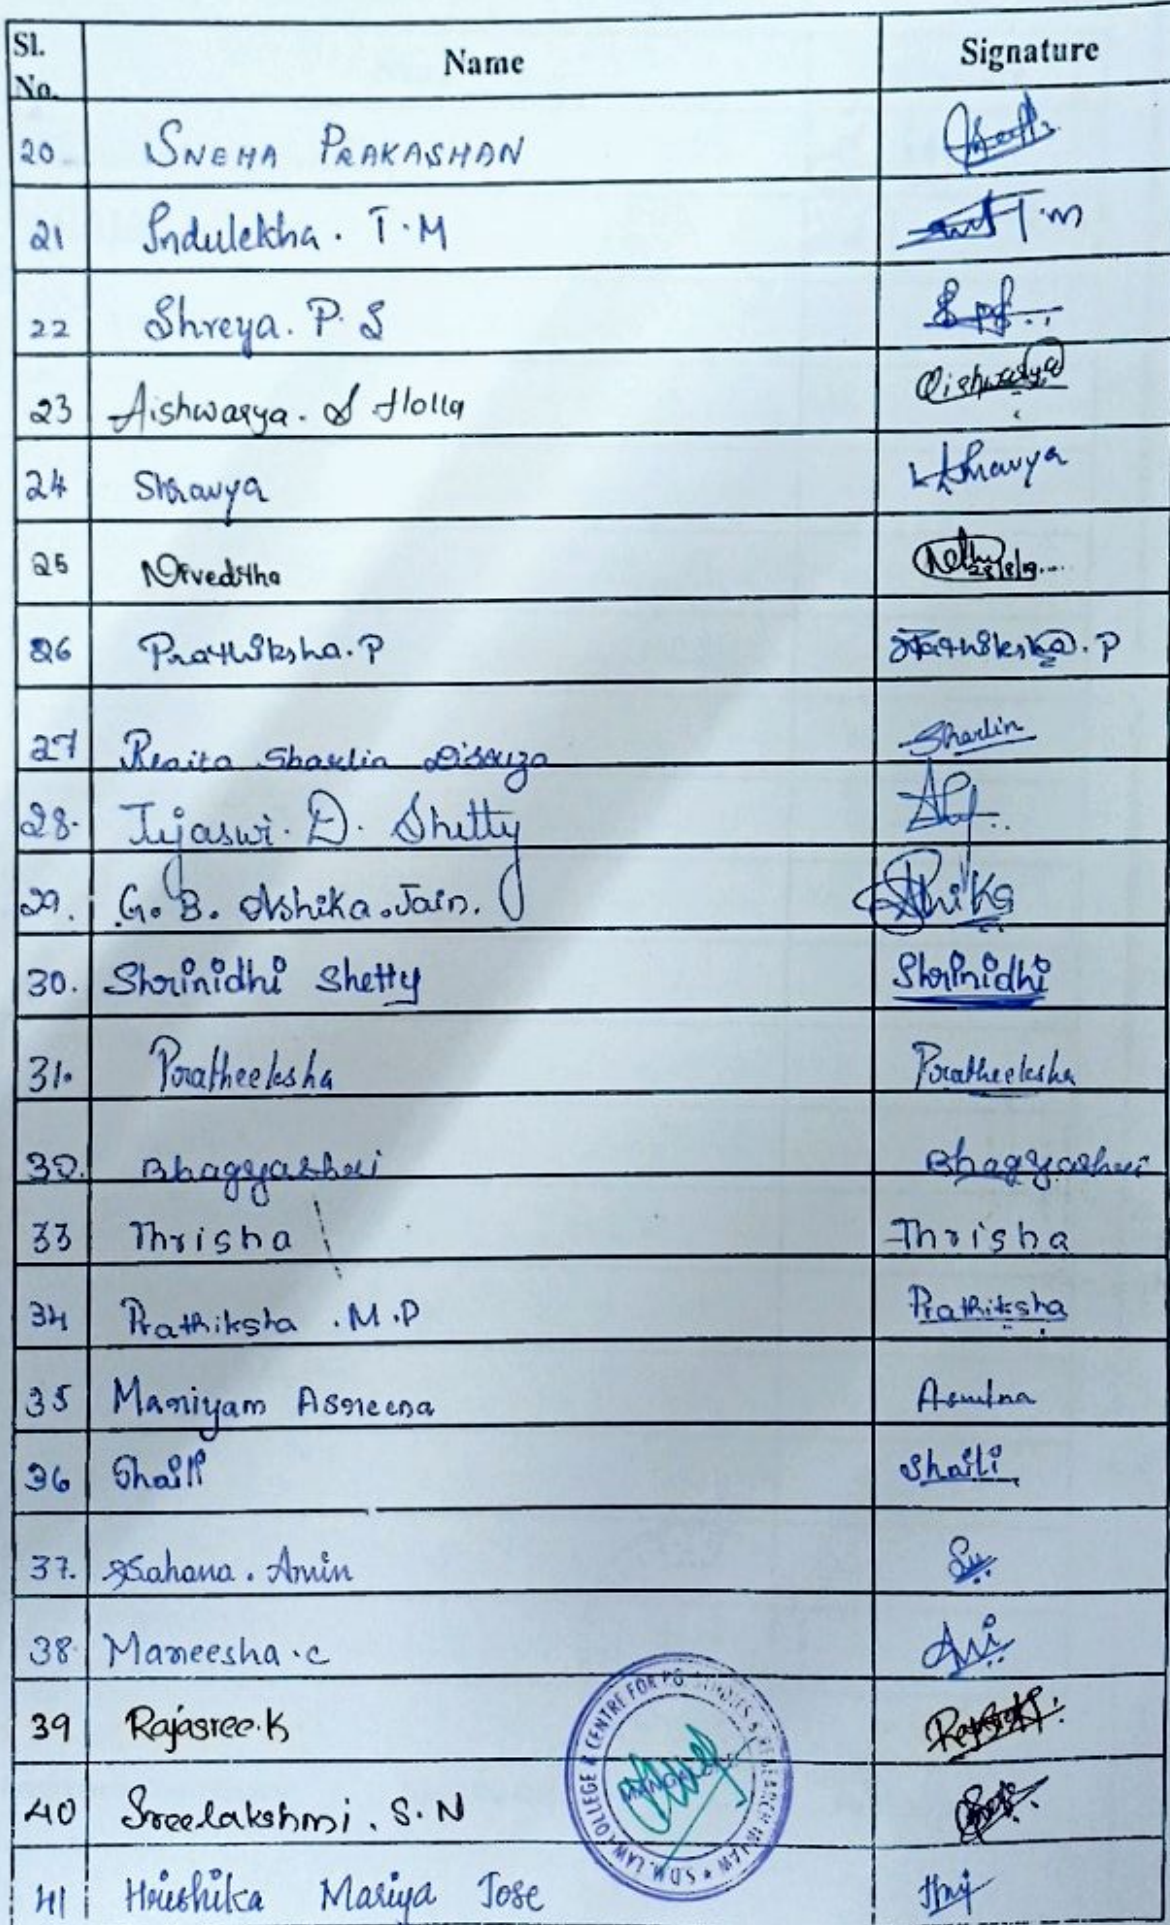 Sl. No. Name Signature
20 SNEHA PRAKASHAN
21 Indulekha. T.M T.m
22 Shreya. P. S
23 Aishwarya. S Holla Aishwarya
24 Shravya Shravya
25 Niveditha
26 Prathiksha. P Prathiksha. P
27 Renita Sharlin Disouza Sharlin
28. Tejaswi. D. Shetty
29. G. B. Akshika. Jain.
30. Shrinidhi Shetty Shrinidhi
31. Pratheeksha Pratheeksha
32. Bhagyashri Bhagyashri
33 Thrisha Thrisha
34 Prathiksha .M.P Prathiksha
35 Mariyam Asreena
36 Shaili Shaili
37. Sahana. Amin
38 Maneesha.c
39 Rajasree.K
40 Sreelakshmi. S.N
41 Hrishika Mariya Jose
S.D.M. LAW COLLEGE & CENTRE FOR PG STUDIES & RESEARCH IN LAW